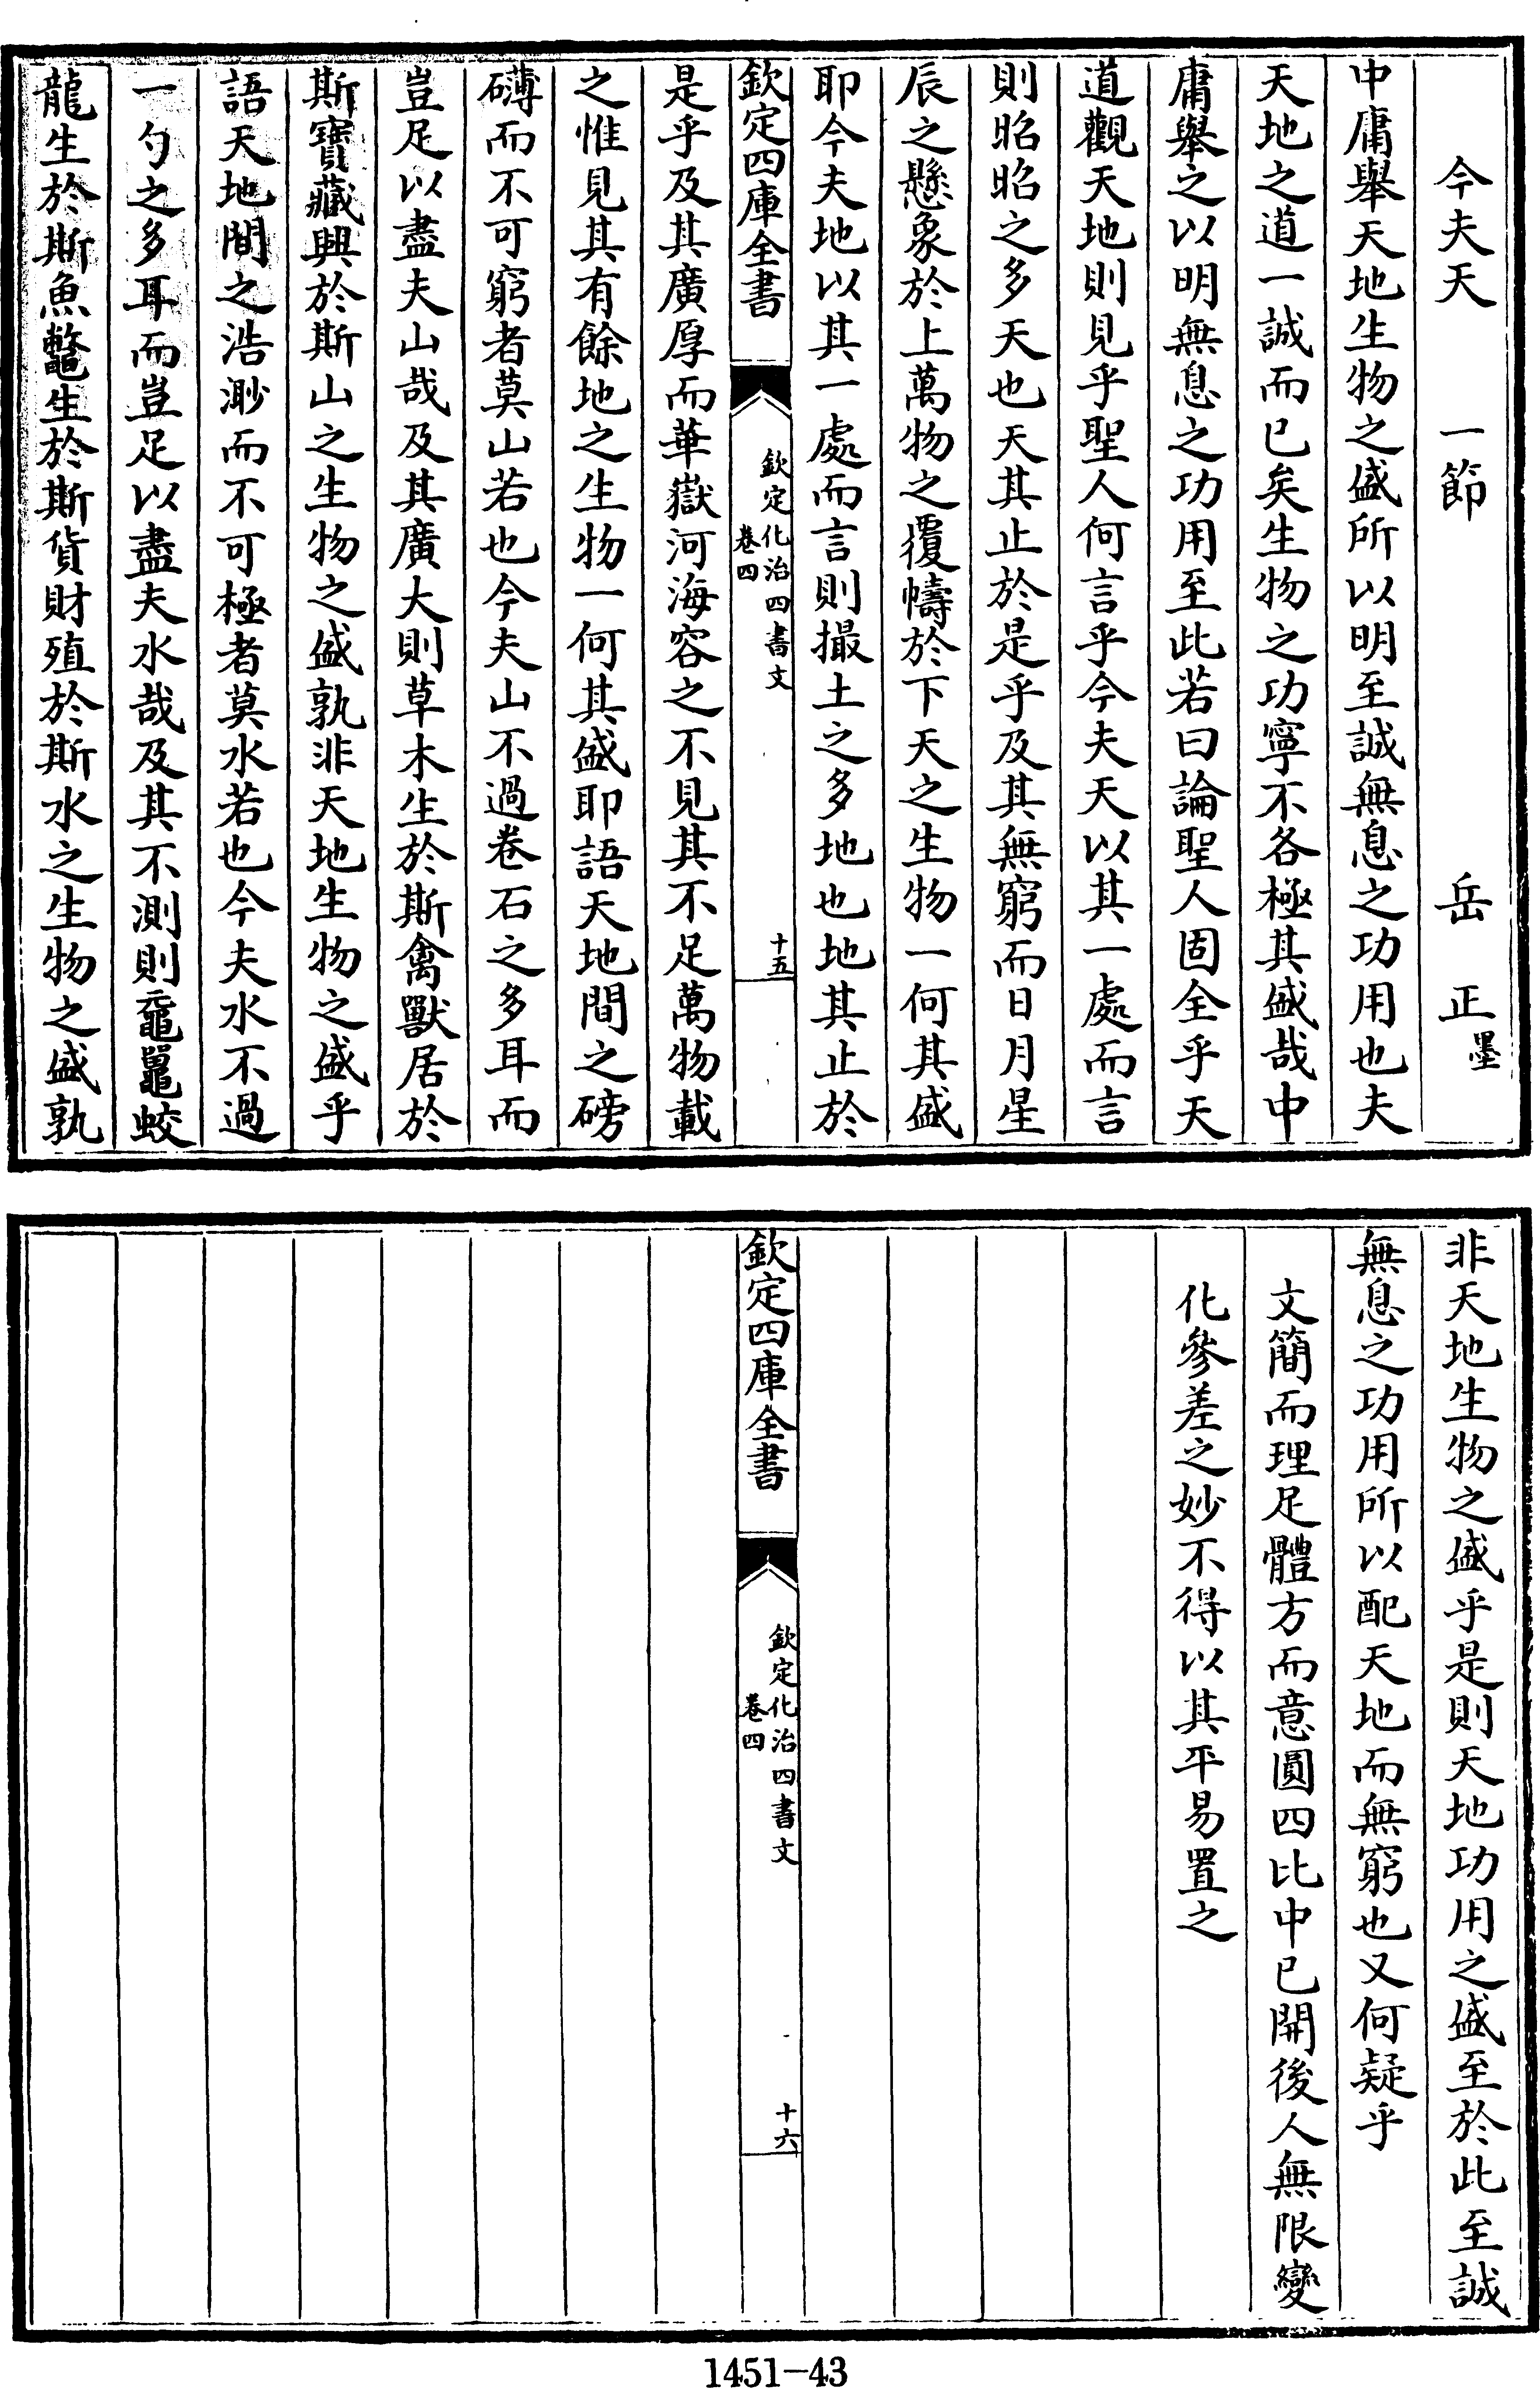 今夫天　一節　岳　正墨
中庸舉天地生物之盛所以明至誠無息之功用也夫
天地之道一誠而已矣生物之功寧不各極其盛哉中
庸舉之以明無息之功用至此若曰論聖人固全乎天
道觀天地則見乎聖人何言乎今夫天以其一處而言
則昭昭之多天也天其止於是乎及其無窮而日月星
辰之懸象於上萬物之覆幬於下天之生物一何其盛
耶今夫地以其一處而言則撮土之多地也地其止於
欽定四庫全書
欽定化治四書文
卷四
十五
是乎及其廣厚而華嶽河海容之不見其不足萬物載
之惟見其有餘地之生物一何其盛耶語天地間之磅
礴而不可窮者莫山若也今夫山不過卷石之多耳而
豈足以盡夫山哉及其廣大則草木生於斯禽獸居於
斯寶藏興於斯山之生物之盛孰非天地生物之盛乎
語天地間之浩渺而不可極者莫水若也今夫水不過
一勺之多耳而豈足以盡夫水哉及其不測則黿鼉蛟
龍生於斯魚鼈生於斯貨財殖於斯水之生物之盛孰
非天地生物之盛乎是則天地功用之盛至於此至誠
無息之功用所以配天地而無窮也又何疑乎
文簡而理足體方而意圓四比中已開後人無限變
化參差之妙不得以其平易置之
欽定四庫全書
欽定化治四書文
卷四
十六
1451-43